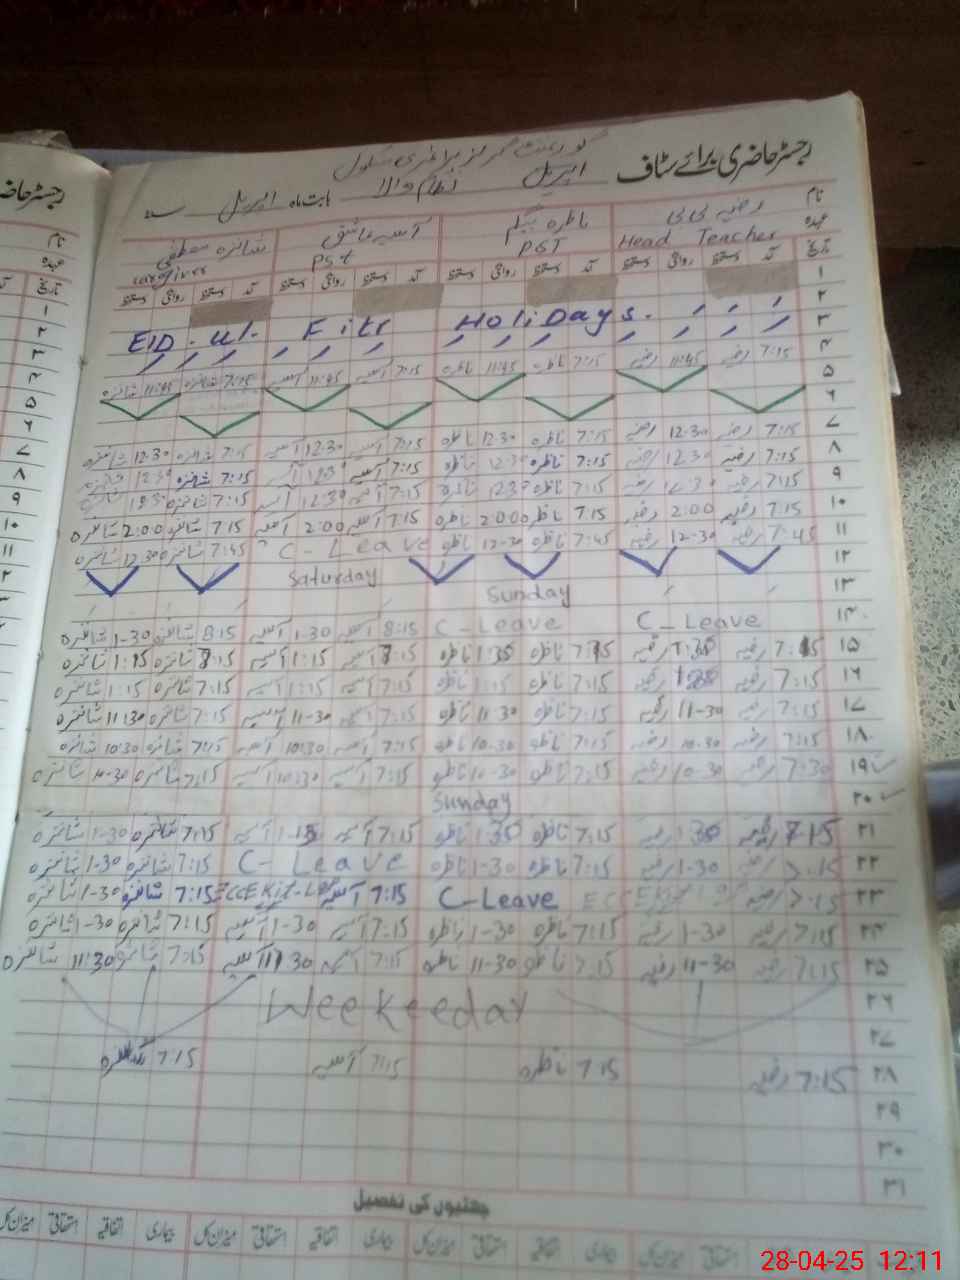 رجسٹر حاضری برائے سٹاف گورنمنٹ گرلز پرائمری سکول
اپریل والا بابت ماہ اپریل سنہ
نام رضیہ بی بی ناظرہ بیگم آسیہ مشتاق شائزہ مصطفی
عہدہ Head Teacher PST PSt caregiver
تاریخ آمد دستخط روانگی دستخط آمد دستخط روانگی دستخط آمد دستخط روانگی دستخط آمد دستخط روانگی دستخط
۱
۲
۳ EID - ul - Fitr Holidays.
۴
۵ 7:15 رضیہ 11:45 رضیہ 7:15 ناظرہ 11:45 ناظرہ 7:15 آسیہ 11:45 آسیہ 7:15 شائزہ 11:45 شائزہ
۶
۷ 7:15 رضیہ 12:30 رضیہ 7:15 ناظرہ 12:30 ناظرہ 7:15 آسیہ 12:30 آسیہ 7:15 شائزہ 12:30 شائزہ
۸ 7:15 رضیہ 12:30 رضیہ 7:15 ناظرہ 12:30 ناظرہ 7:15 آسیہ 12:30 آسیہ 7:15 شائزہ 12:30 شائزہ
۹ 7:15 رضیہ 12:30 رضیہ 7:15 ناظرہ 12:30 ناظرہ 7:15 آسیہ 12:30 آسیہ 7:15 شائزہ 12:30 شائزہ
10 7:15 رضیہ 2:00 رضیہ 7:15 ناظرہ 2:00 ناظرہ 7:15 آسیہ 2:00 آسیہ 7:15 شائزہ 2:00 شائزہ
11 7:45 رضیہ 12-30 رضیہ 7:45 ناظرہ 12-30 ناظرہ C - Leave 7:45 شائزہ 12:30 شائزہ
۱۲ Saturday
۱۳ Sunday
۱۴ C - Leave C - Leave 8:15 آسیہ 1-30 آسیہ 8:15 شائزہ 1-30 شائزہ
۱۵ 7:15 رضیہ 1:30 رضیہ 7:15 ناظرہ 1:30 ناظرہ 7:15 آسیہ 1:15 آسیہ 7:15 شائزہ 1:15 شائزہ
۱۶ 7:15 رضیہ رضیہ 7:15 ناظرہ 1:15 ناظرہ 7:15 آسیہ 1:15 آسیہ 7:15 شائزہ 1:15 شائزہ
۱۷ 7:15 رضیہ 11-30 رضیہ 7:15 ناظرہ 11:30 ناظرہ 7:15 آسیہ 11-30 آسیہ 7:15 شائزہ 11:30 شائزہ
۱۸ 7:15 رضیہ 10-30 رضیہ 7:15 ناظرہ 10-30 ناظرہ 7:15 آسیہ 10:30 آسیہ 7:15 شائزہ 10:30 شائزہ
۱۹ 7:30 رضیہ 10-30 رضیہ 7:15 ناظرہ 10-30 ناظرہ 7:15 آسیہ 10:30 آسیہ 7:15 شائزہ 10-30 شائزہ
۲۰ Sunday
۲۱ 7:15 رضیہ 1:30 رضیہ 7:15 ناظرہ 1:30 ناظرہ 7:15 آسیہ آسیہ 7:15 شائزہ 1-30 شائزہ
۲۲ 7:15 رضیہ 1-30 رضیہ 7:15 ناظرہ 1-30 ناظرہ C - Leave 7:15 شائزہ 1-30 شائزہ
۲۳ 7:15 رضیہ C-Leave 7:15 آسیہ 7:15 شائزہ 1-30 شائزہ
۲۴ 7:15 رضیہ 1-30 رضیہ 7:15 ناظرہ 1-30 ناظرہ 7:15 آسیہ 1-30 آسیہ 7:15 شائزہ 1-30 شائزہ
۲۵ 7:15 رضیہ 11-30 رضیہ 7:15 ناظرہ 11-30 ناظرہ 7:15 آسیہ 11:30 آسیہ 7:15 شائزہ 11:30 شائزہ
۲۶ Weekeeday
۲۷
۲۸ 7:15 رضیہ 7:15 ناظرہ 7:15 آسیہ 7:15 شائزہ
۲۹
۳۰
۳۱
چھٹیوں کی تفصیل
اتفاقیہ استحقاقی میزان کل بیماری اتفاقیہ استحقاقی میزان کل بیماری اتفاقیہ استحقاقی میزان کل بیماری اتفاقیہ استحقاقی میزان کل
28-04-25 12:11